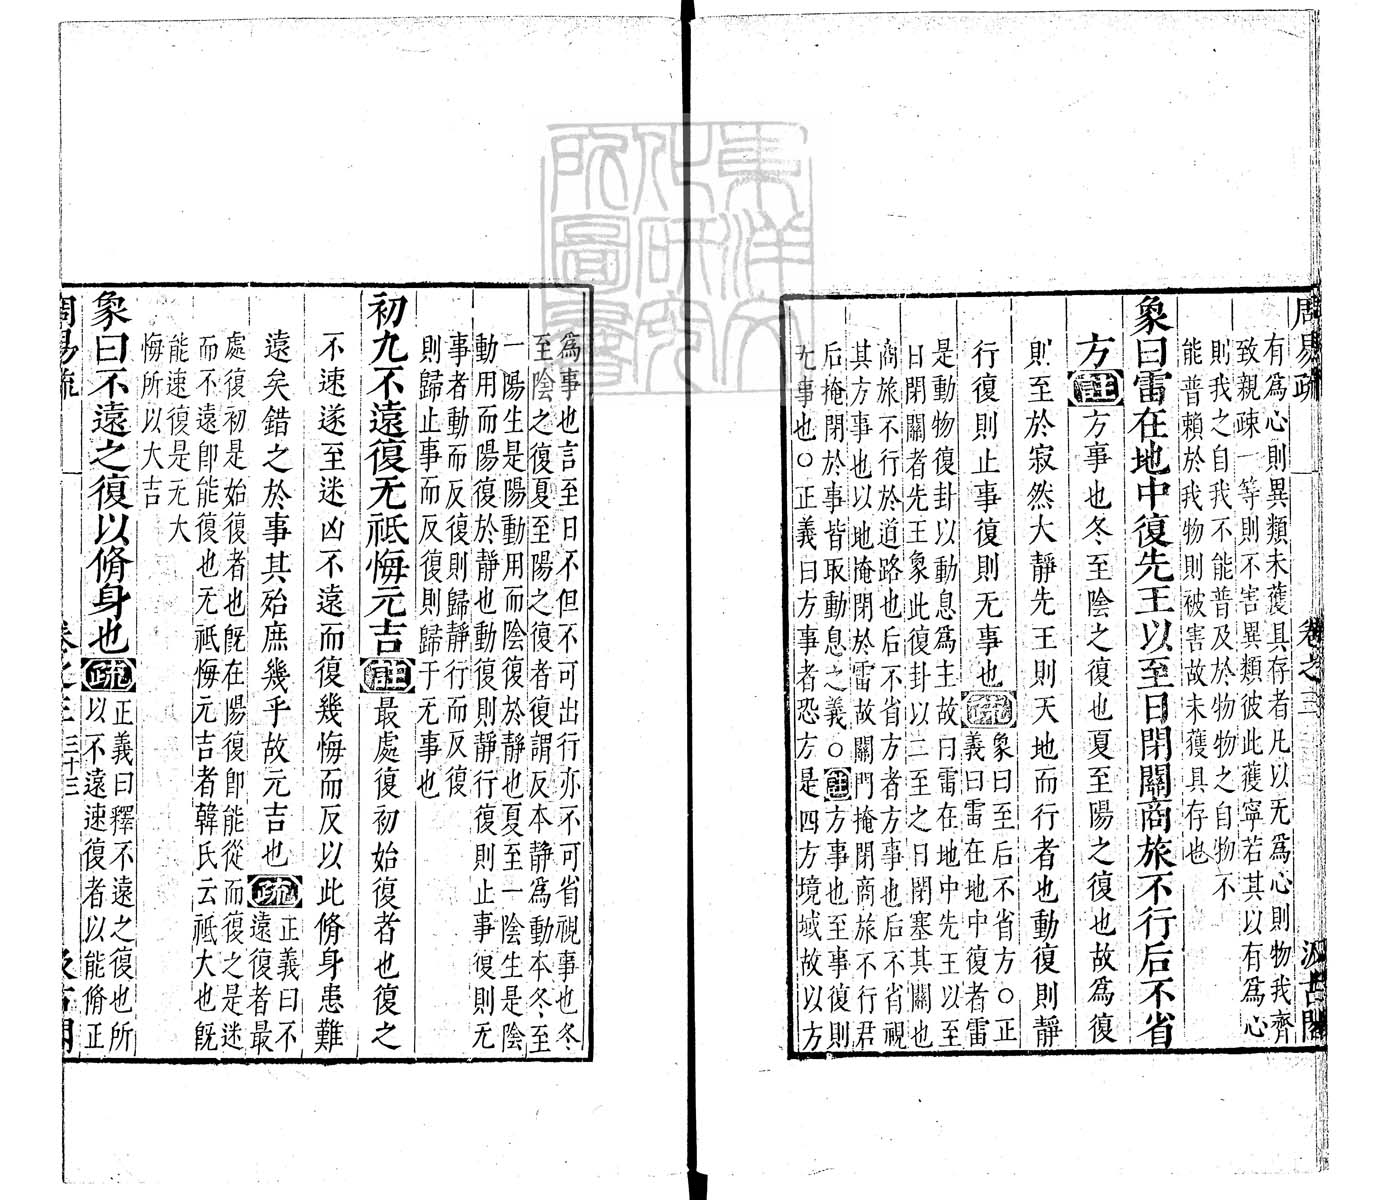 周易疏 卷之三 汲古閣
有爲心則異類未獲具存者凡以无爲心則物我齊
致親疎一等則不害異類彼此獲寧若其以有爲心
則我之自我不能普及於物物之自物不
能普賴於我物則被害故未獲具存也
象曰雷在地中復先王以至日閉關商旅不行后不省
方註方事也冬至陰之復也夏至陽之復也故爲復
則至於寂然大靜先王則天地而行者也動復則靜
行復則止事復則无事也疏象曰至后不省方○正
義曰雷在地中復者雷
是動物復卦以動息爲主故曰雷在地中先王以至
日閉關者先王象此復卦以二至之日閉塞其關也
商旅不行於道路也后不省方者方事也后不省視
其方事也以地掩閉於雷故關門掩閉商旅不行君
后掩閉於事皆取動息之義○註方事也至事復則
无事也○正義曰方事者恐方是四方境域故以方
爲事也言至日不但不可出行亦不可省視事也冬
至陰之復夏至陽之復者復謂反本靜爲動本冬至
一陽生是陽動用而陰復於靜也夏至一陰生是陰
動用而陽復於靜也動復則靜行復則止事復則无
事者動而反復則歸靜行而反復
則歸止事而反復則歸于无事也
初九不遠復无祗悔元吉註最處復初始復者也復之
不速遂至迷凶不遠而復幾悔而反以此脩身患難
遠矣錯之於事其殆庶幾乎故元吉也疏正義曰不
遠復者最
處復初是始復者也旣在陽復卽能從而復之是迷
而不遠卽能復也无祗悔元吉者韓氏云祗大也旣
能速復是无大
悔所以大吉
象曰不遠之復以脩身也疏正義曰釋不遠之復也所
以不遠速復者以能脩正
周易疏 卷之三 三十三 汲古閣
東洋文化研究所圖書